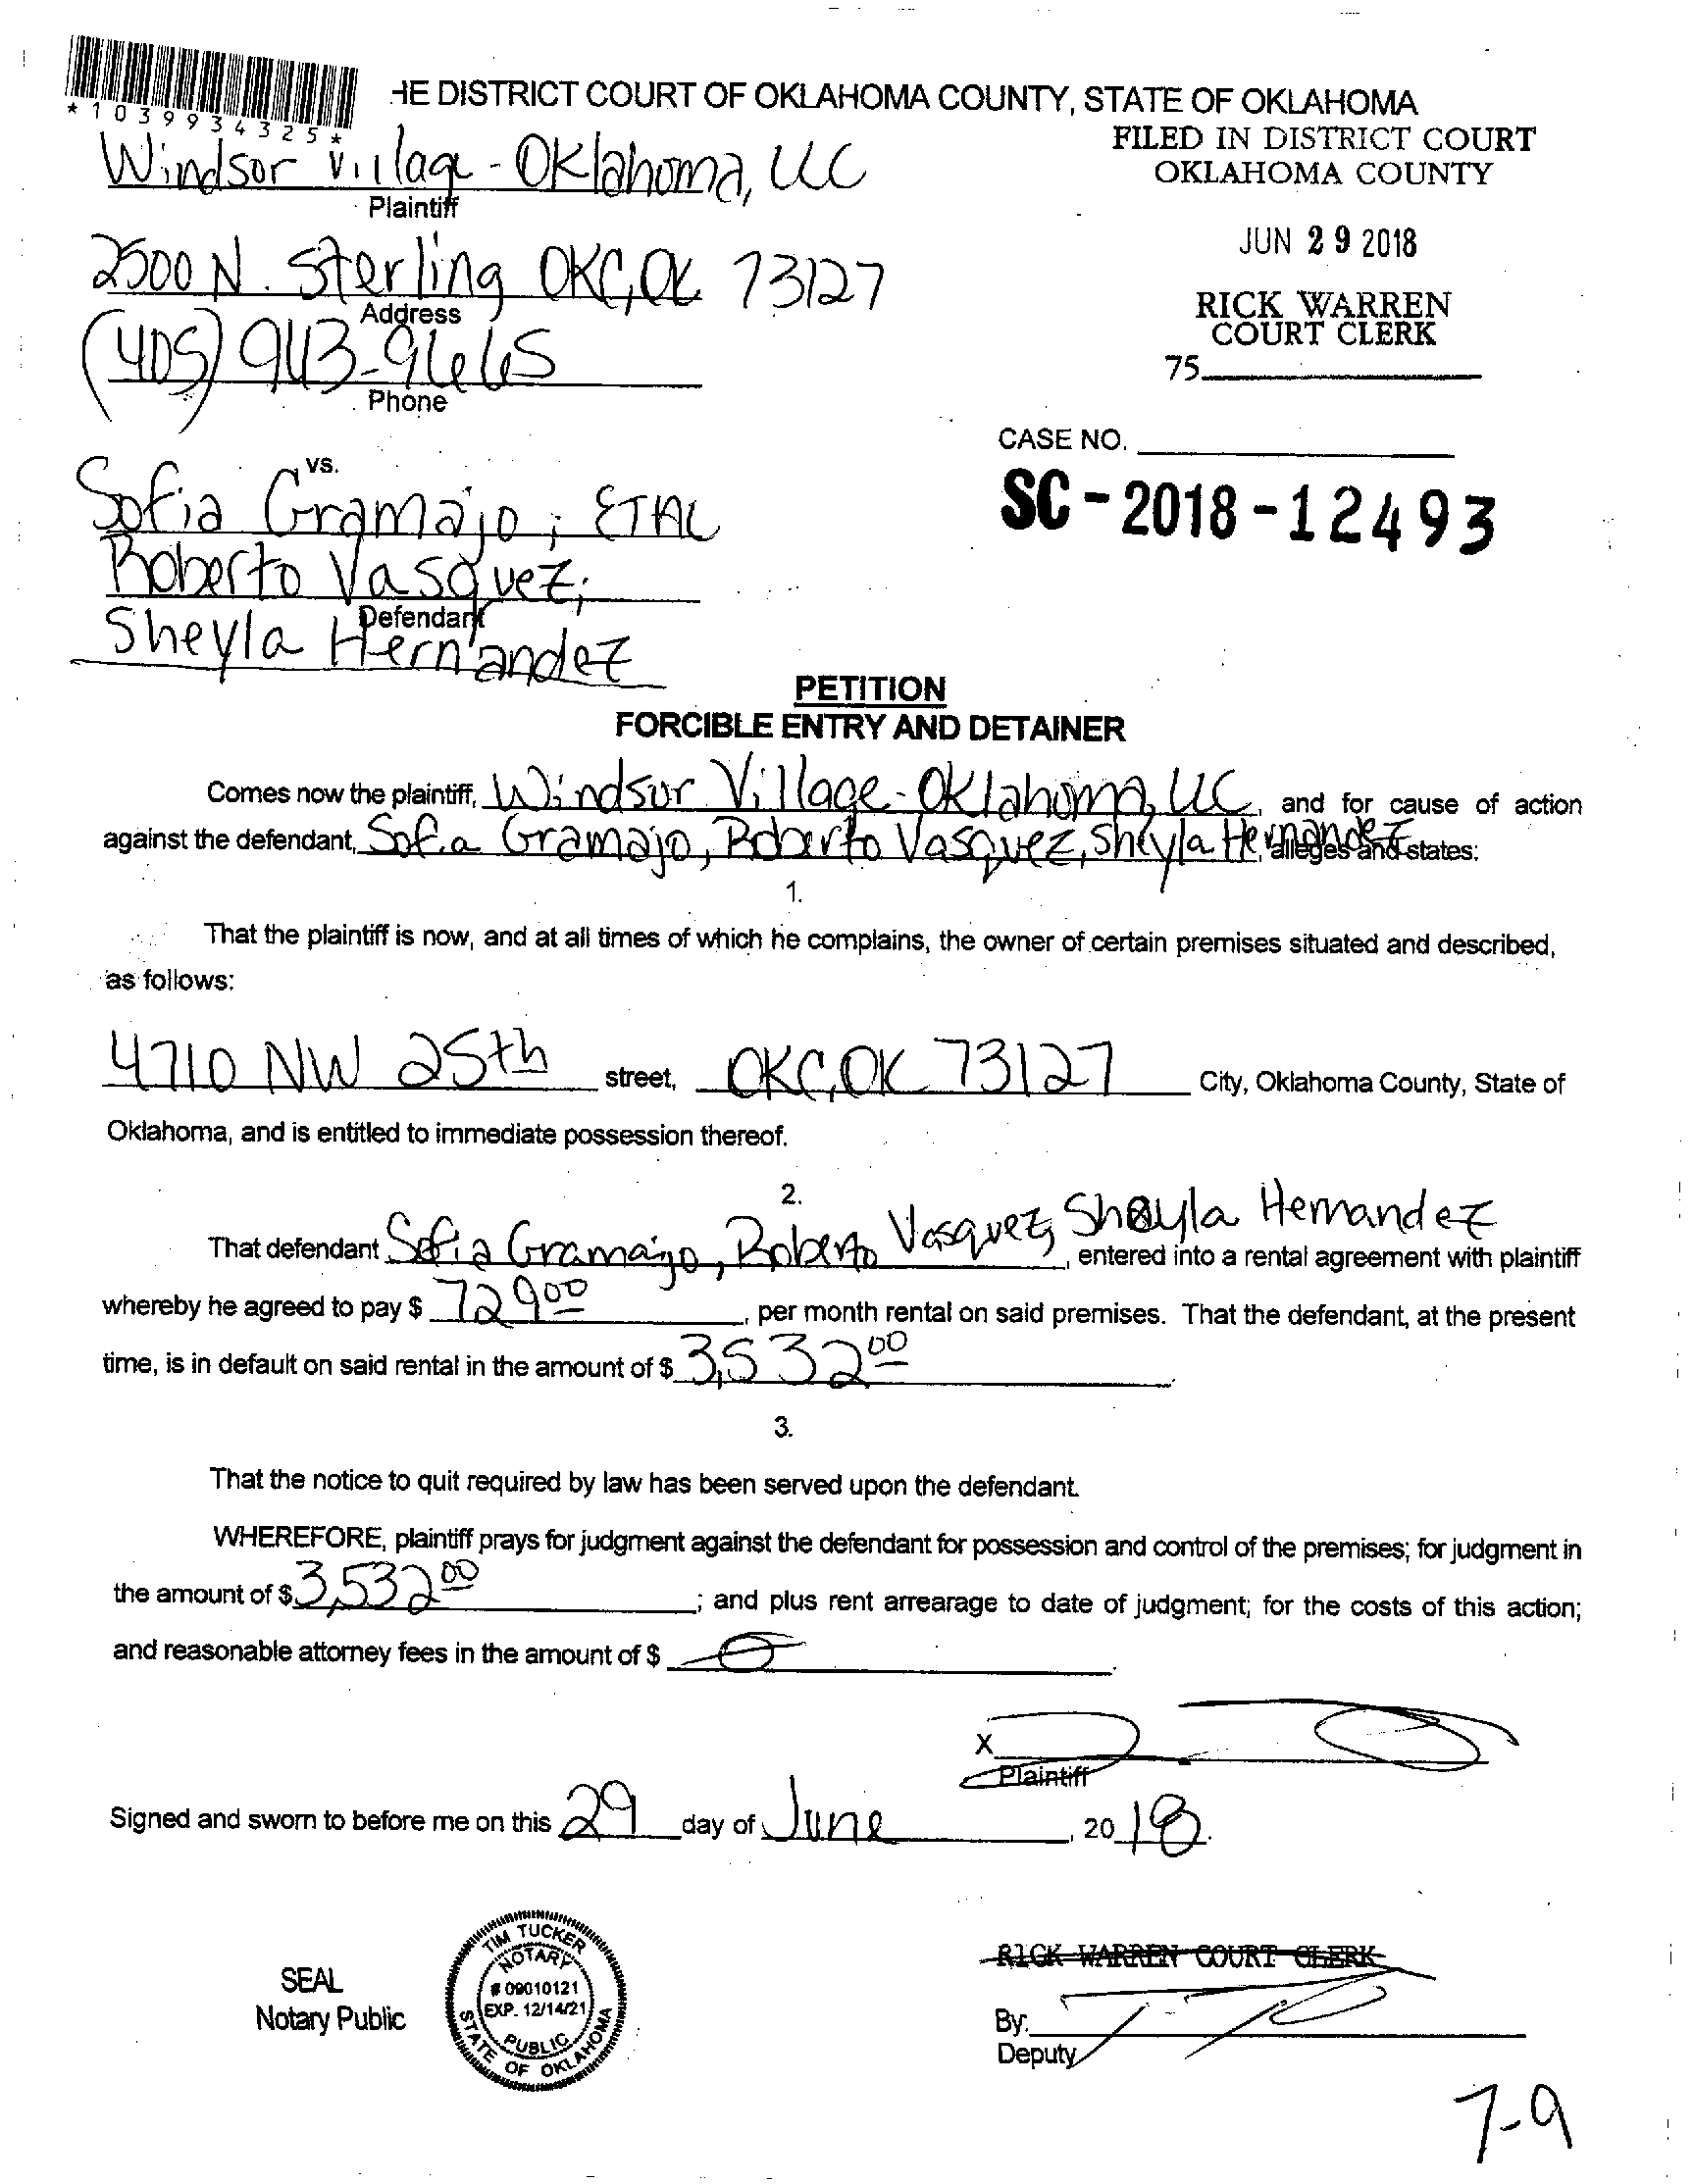 *1039934325*
HE DISTRICT COURT OF OKLAHOMA COUNTY, STATE OF OKLAHOMA
FILED IN DISTRICT COURT
OKLAHOMA COUNTY
Windsor Village - Oklahoma, LLC
Plaintiff
JUN 29 2018
2500 N. Sterling OKC, OK 73127
Address
RICK WARREN
COURT CLERK
75
(405) 943-9665
Phone
CASE NO.
SC-2018-12493
vs.
Sofia Gramajo; ETAL
Roberto Vasquez;
Defendant
Sheyla Hernandez
PETITION
FORCIBLE ENTRY AND DETAINER
Comes now the plaintiff, Windsor Village-Oklahoma, LLC, and for cause of action
against the defendant, Sofia Gramajo, Roberto Vasquez, Sheyla Hernandez, alleges and states:
1.
That the plaintiff is now, and at all times of which he complains, the owner of certain premises situated and described,
as follows:
4710 NW 25th street, OKC, OK 73127 City, Oklahoma County, State of
Oklahoma, and is entitled to immediate possession thereof.
2.
That defendant Sofia Gramajo, Roberto Vasquez, Sheyla Hernandez, entered into a rental agreement with plaintiff
whereby he agreed to pay $ 729 00, per month rental on said premises. That the defendant, at the present
time, is in default on said rental in the amount of $ 3,532 00
3.
That the notice to quit required by law has been served upon the defendant.
WHEREFORE, plaintiff prays for judgment against the defendant for possession and control of the premises; for judgment in
the amount of $ 3,532 00; and plus rent arrearage to date of judgment; for the costs of this action;
and reasonable attorney fees in the amount of $ 0.
X
Plaintiff
Signed and sworn to before me on this 29 day of June, 2018.
SEAL
Notary Public
TIM TUCKER
NOTARY
# 09010121
EXP. 12/14/21
PUBLIC
STATE OF OKLAHOMA
RICK WARREN COURT CLERK
By:
Deputy
7-9